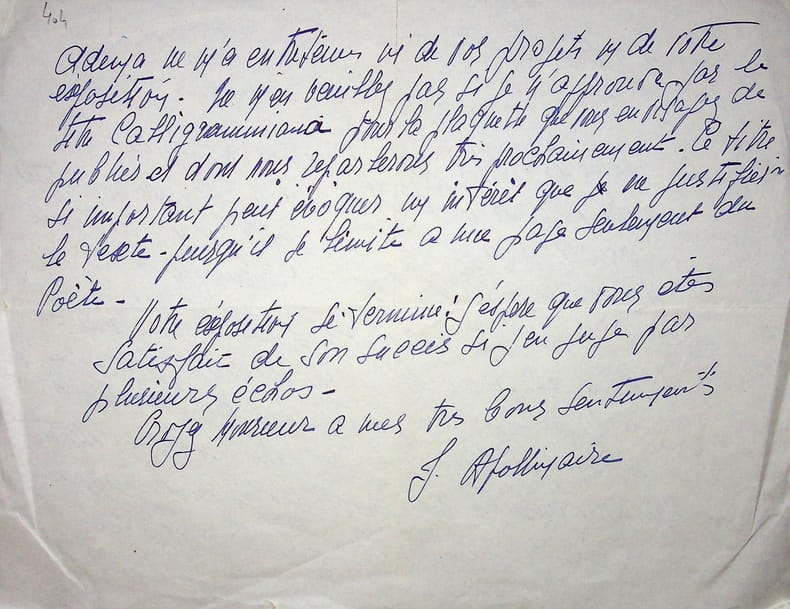 404
Adema ne m'a entretenu ni de vos projets ni de votre
exposition. Ne m'en veuillez pas si je n'approuve pas le
titre Calligrammiana pour la plaquette que vous envisagez de
publier et dont nous reparlerons très prochainement. Ce titre
si important peut évoquer un intérêt que je ne justifie
le texte - puisqu'il se limite a une page seulement du
Poète -
Votre exposition se termine : j'espère que vous êtes
satisfait de son succès si j'en juge par
plusieurs échos -
Croyez Monsieur a mes très bons sentiments
J. Apollinaire